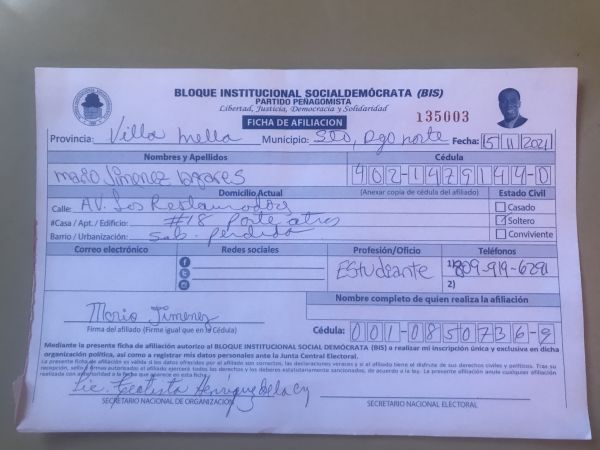 BLOQUE INSTITUCIONAL SOCIALDEMÓCRATA (BIS)
PARTIDO PEÑAGOMISTA
Libertad, Justicia, Democracia y Solidaridad
FICHA DE AFILIACION
135003
Provincia: Villa mella Municipio: Sto, Dgo norte Fecha: 15 11 2021
Nombres y Apellidos Cédula
Jimenez 402-1479144-0
Domicilio Actual (Anexar copia de cédula del afiliado) Estado Civil
Calle: AV. Los Restauradores Casado
#Casa / Apt. / Edificio: #18 Parte atras Soltero
Barrio / Urbanización: Sab. Perdida Conviviente
Correo electrónico Redes sociales Profesión/Oficio Teléfonos
Estudiante 1) 809-919-6291
2)
Nombre completo de quien realiza la afiliación
Jimenez
Firma del afiliado (Firme igual que en la Cédula) Cédula: 001-0850736-9
Mediante la presente ficha de afiliación autorizo al BLOQUE INSTITUCIONAL SOCIALDEMÓCRATA (BIS) a realizar mi inscripción única y exclusiva en dicha
organización política, así como a registrar mis datos personales ante la Junta Central Electoral.
La presente ficha de afiliación es válida si los datos del afiliado son correctos, las declaraciones veraces y si el afiliado tiene el disfrute de sus derechos civiles y políticos. Tras su
recepción, sello y firmas autorizadas el afiliado ejercerá todos los derechos y deberes estatutariamente sancionados, de acuerdo a la ley. La presente afiliación anula cualquier afiliación
realizada con anterioridad a la fecha que aparece en esta ficha.
Lic.
SECRETARIO NACIONAL DE ORGANIZACIÓN SECRETARIO NACIONAL ELECTORAL